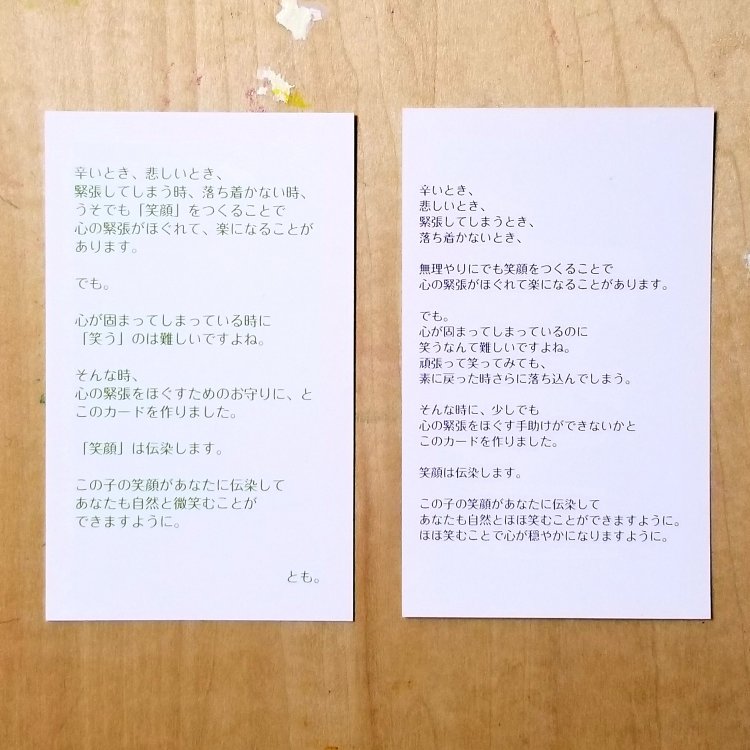 辛いとき、悲しいとき、
緊張してしまう時、落ち着かない時、
うそでも「笑顔」をつくることで
心の緊張がほぐれて、楽になることが
あります。
でも。
心が固まってしまっている時に
「笑う」のは難しいですよね。
そんな時、
心の緊張をほぐすためのお守りに、と
このカードを作りました。
「笑顔」は伝染します。
この子の笑顔があなたに伝染して
あなたも自然と微笑むことが
できますように。
とも。
辛いとき、
悲しいとき、
緊張してしまうとき、
落ち着かないとき、
無理やりにでも笑顔をつくることで
心の緊張がほぐれて楽になることがあります。
でも。
心が固まってしまっているのに
笑うなんて難しいですよね。
頑張って笑ってみても、
素に戻った時さらに落ち込んでしまう。
そんな時に、少しでも
心の緊張をほぐす手助けができないかと
このカードを作りました。
笑顔は伝染します。
この子の笑顔があなたに伝染して
あなたも自然とほほ笑むことができますように。
ほほ笑むことで心が穏やかになりますように。